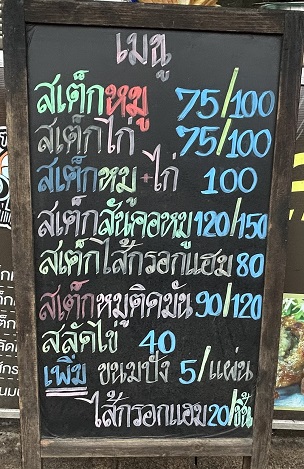 เมนู
สเต็กหมู 75/100
สเต็กไก่ 75/100
สเต็กหมู+ไก่ 100
สเต็กสันคอหมู 120/150
สเต็กไส้กรอกแฮม 80
สเต็กหมูติดมัน 90/120
สลัดไข่ 40
เพิ่ม ขนมปัง 5/แผ่น
ไส้กรอกแฮม 20/ชิ้น